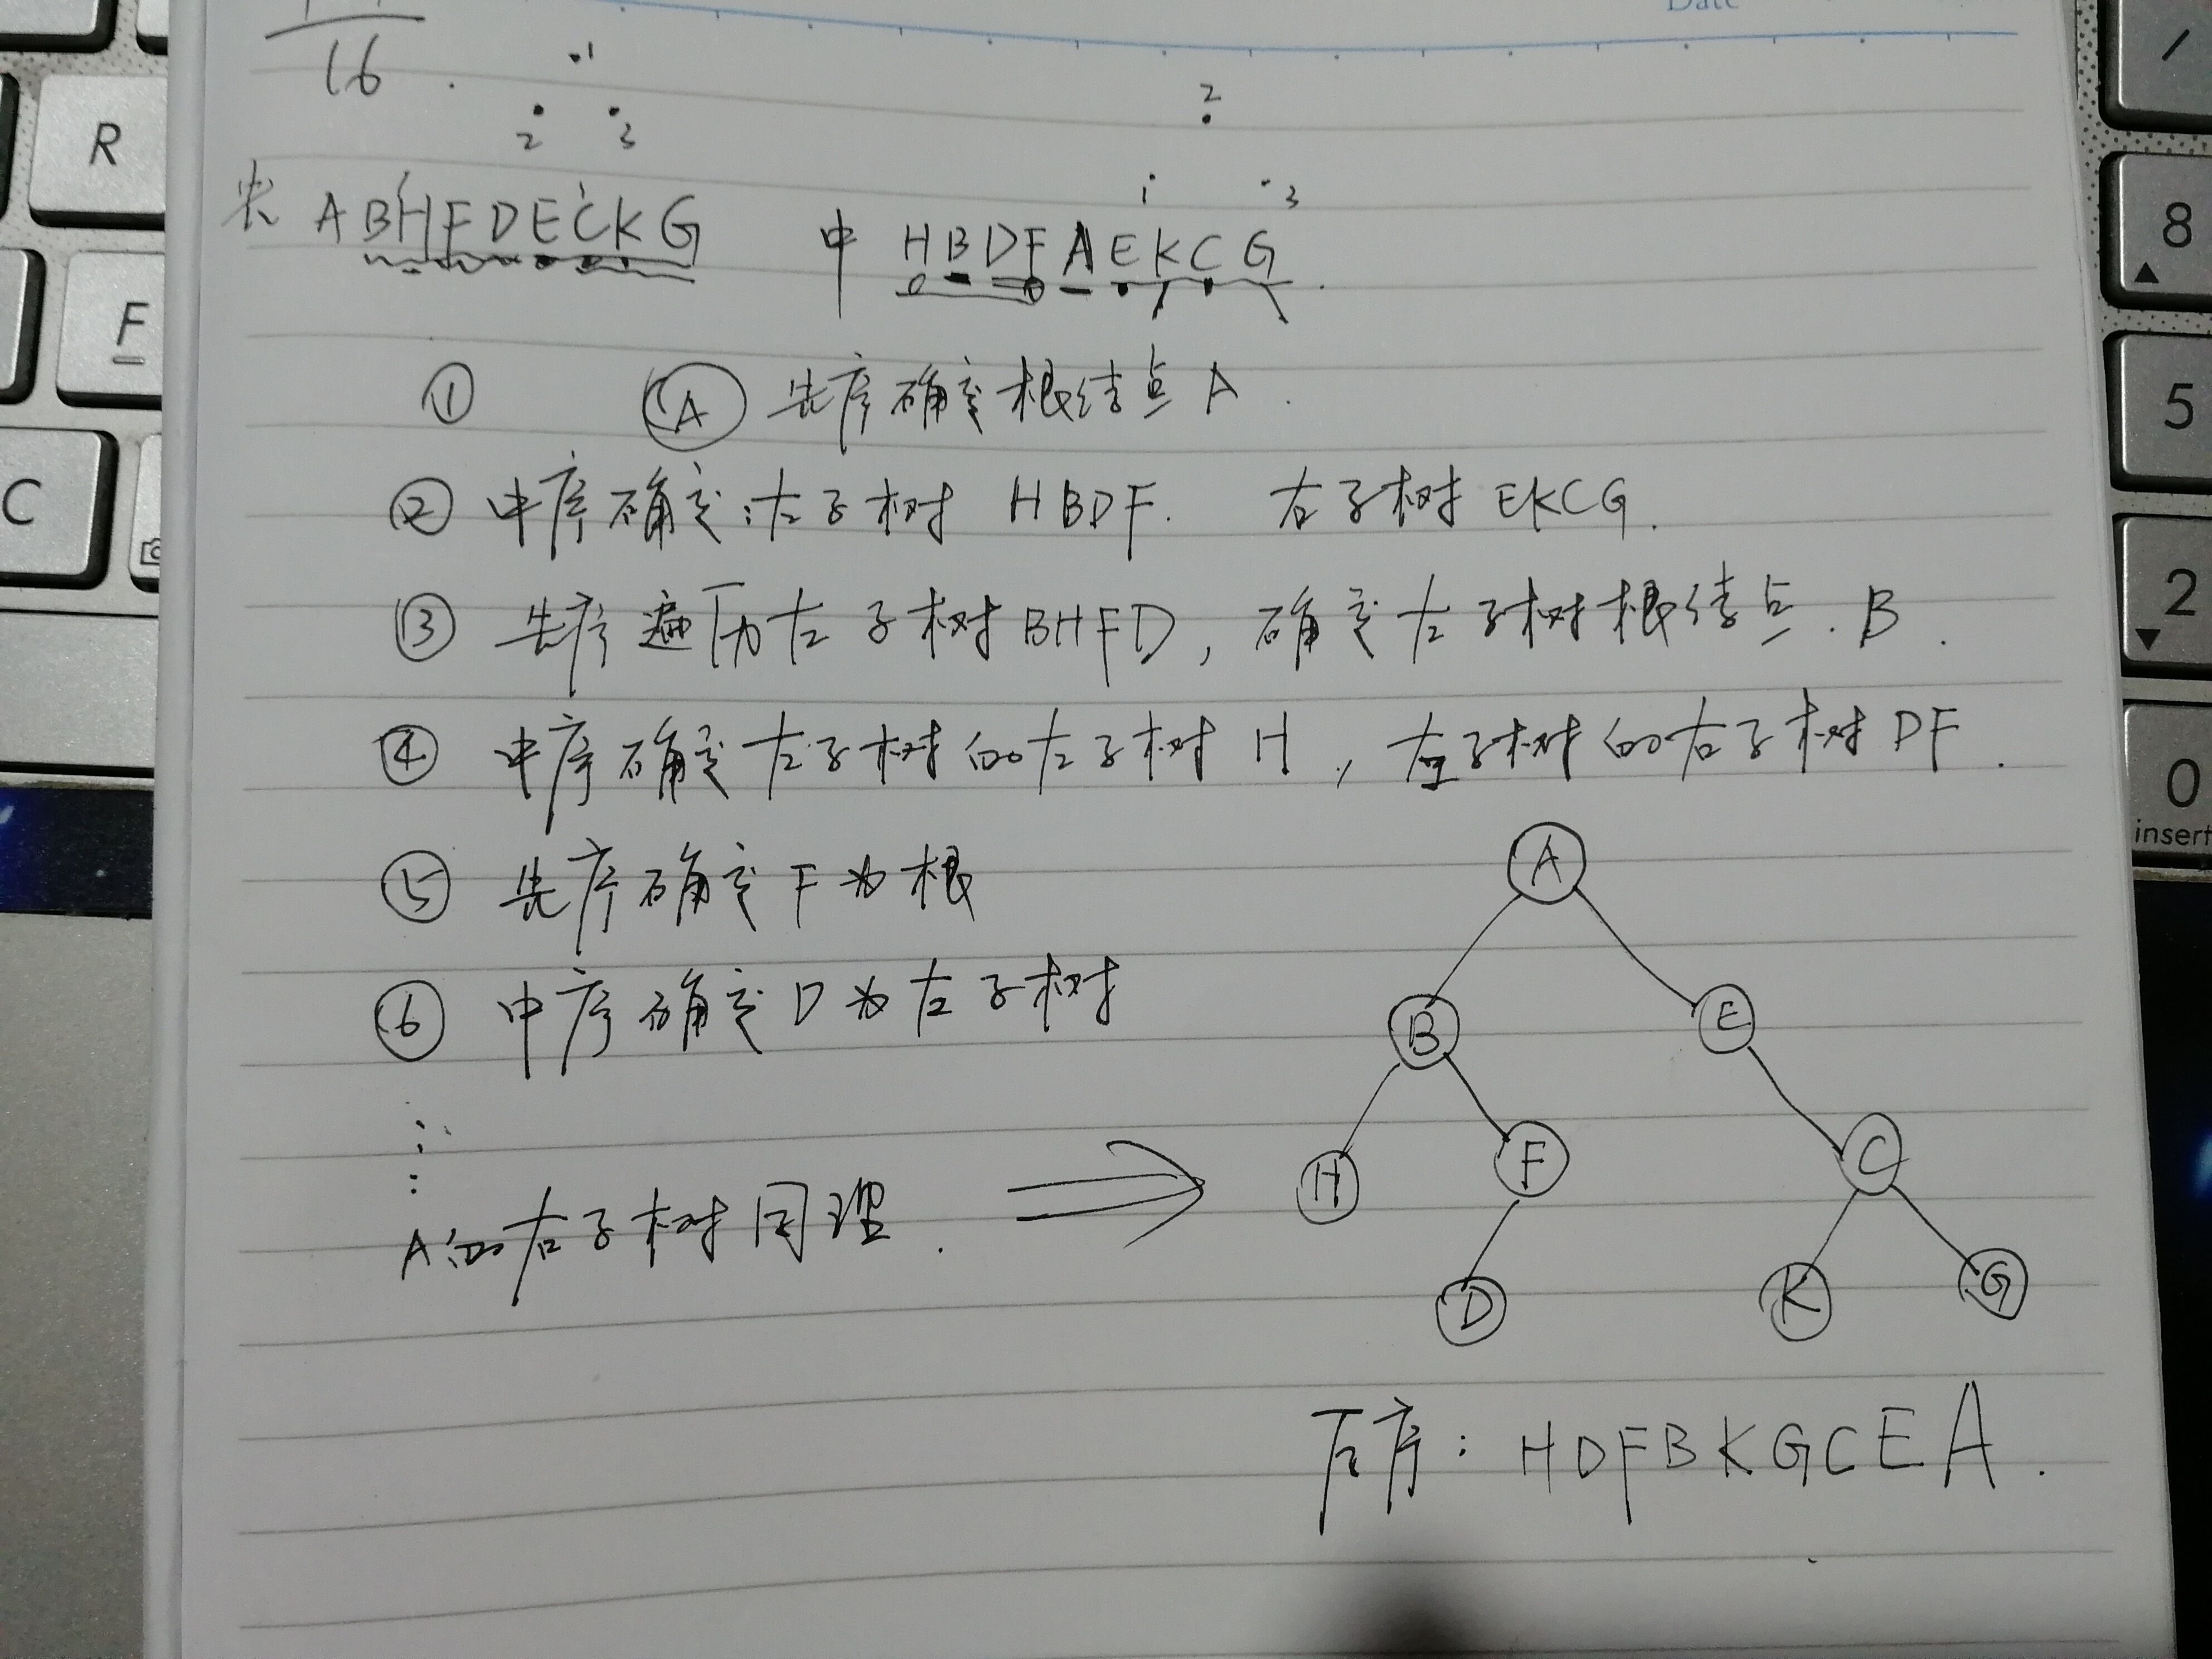 Date
16
1
2 3
2
1 3
先 ABHFDECKG 中 HBDFAEKCG
① A 先序确定根结点A.
② 中序确定:左子树 HBDF. 右子树 EKCG.
③ 先序遍历左子树BHFD, 确定左子树根结点.B.
④ 中序确定左子树的左子树 H, 左子树的右子树DF.
⑤ 先序确定F为根
⑥ 中序确定D为左子树
A的右子树同理.
A
B E
H F C
D K G
后序: HDFBKGCEA.
R
F
C
/
8
5
2
0
insert